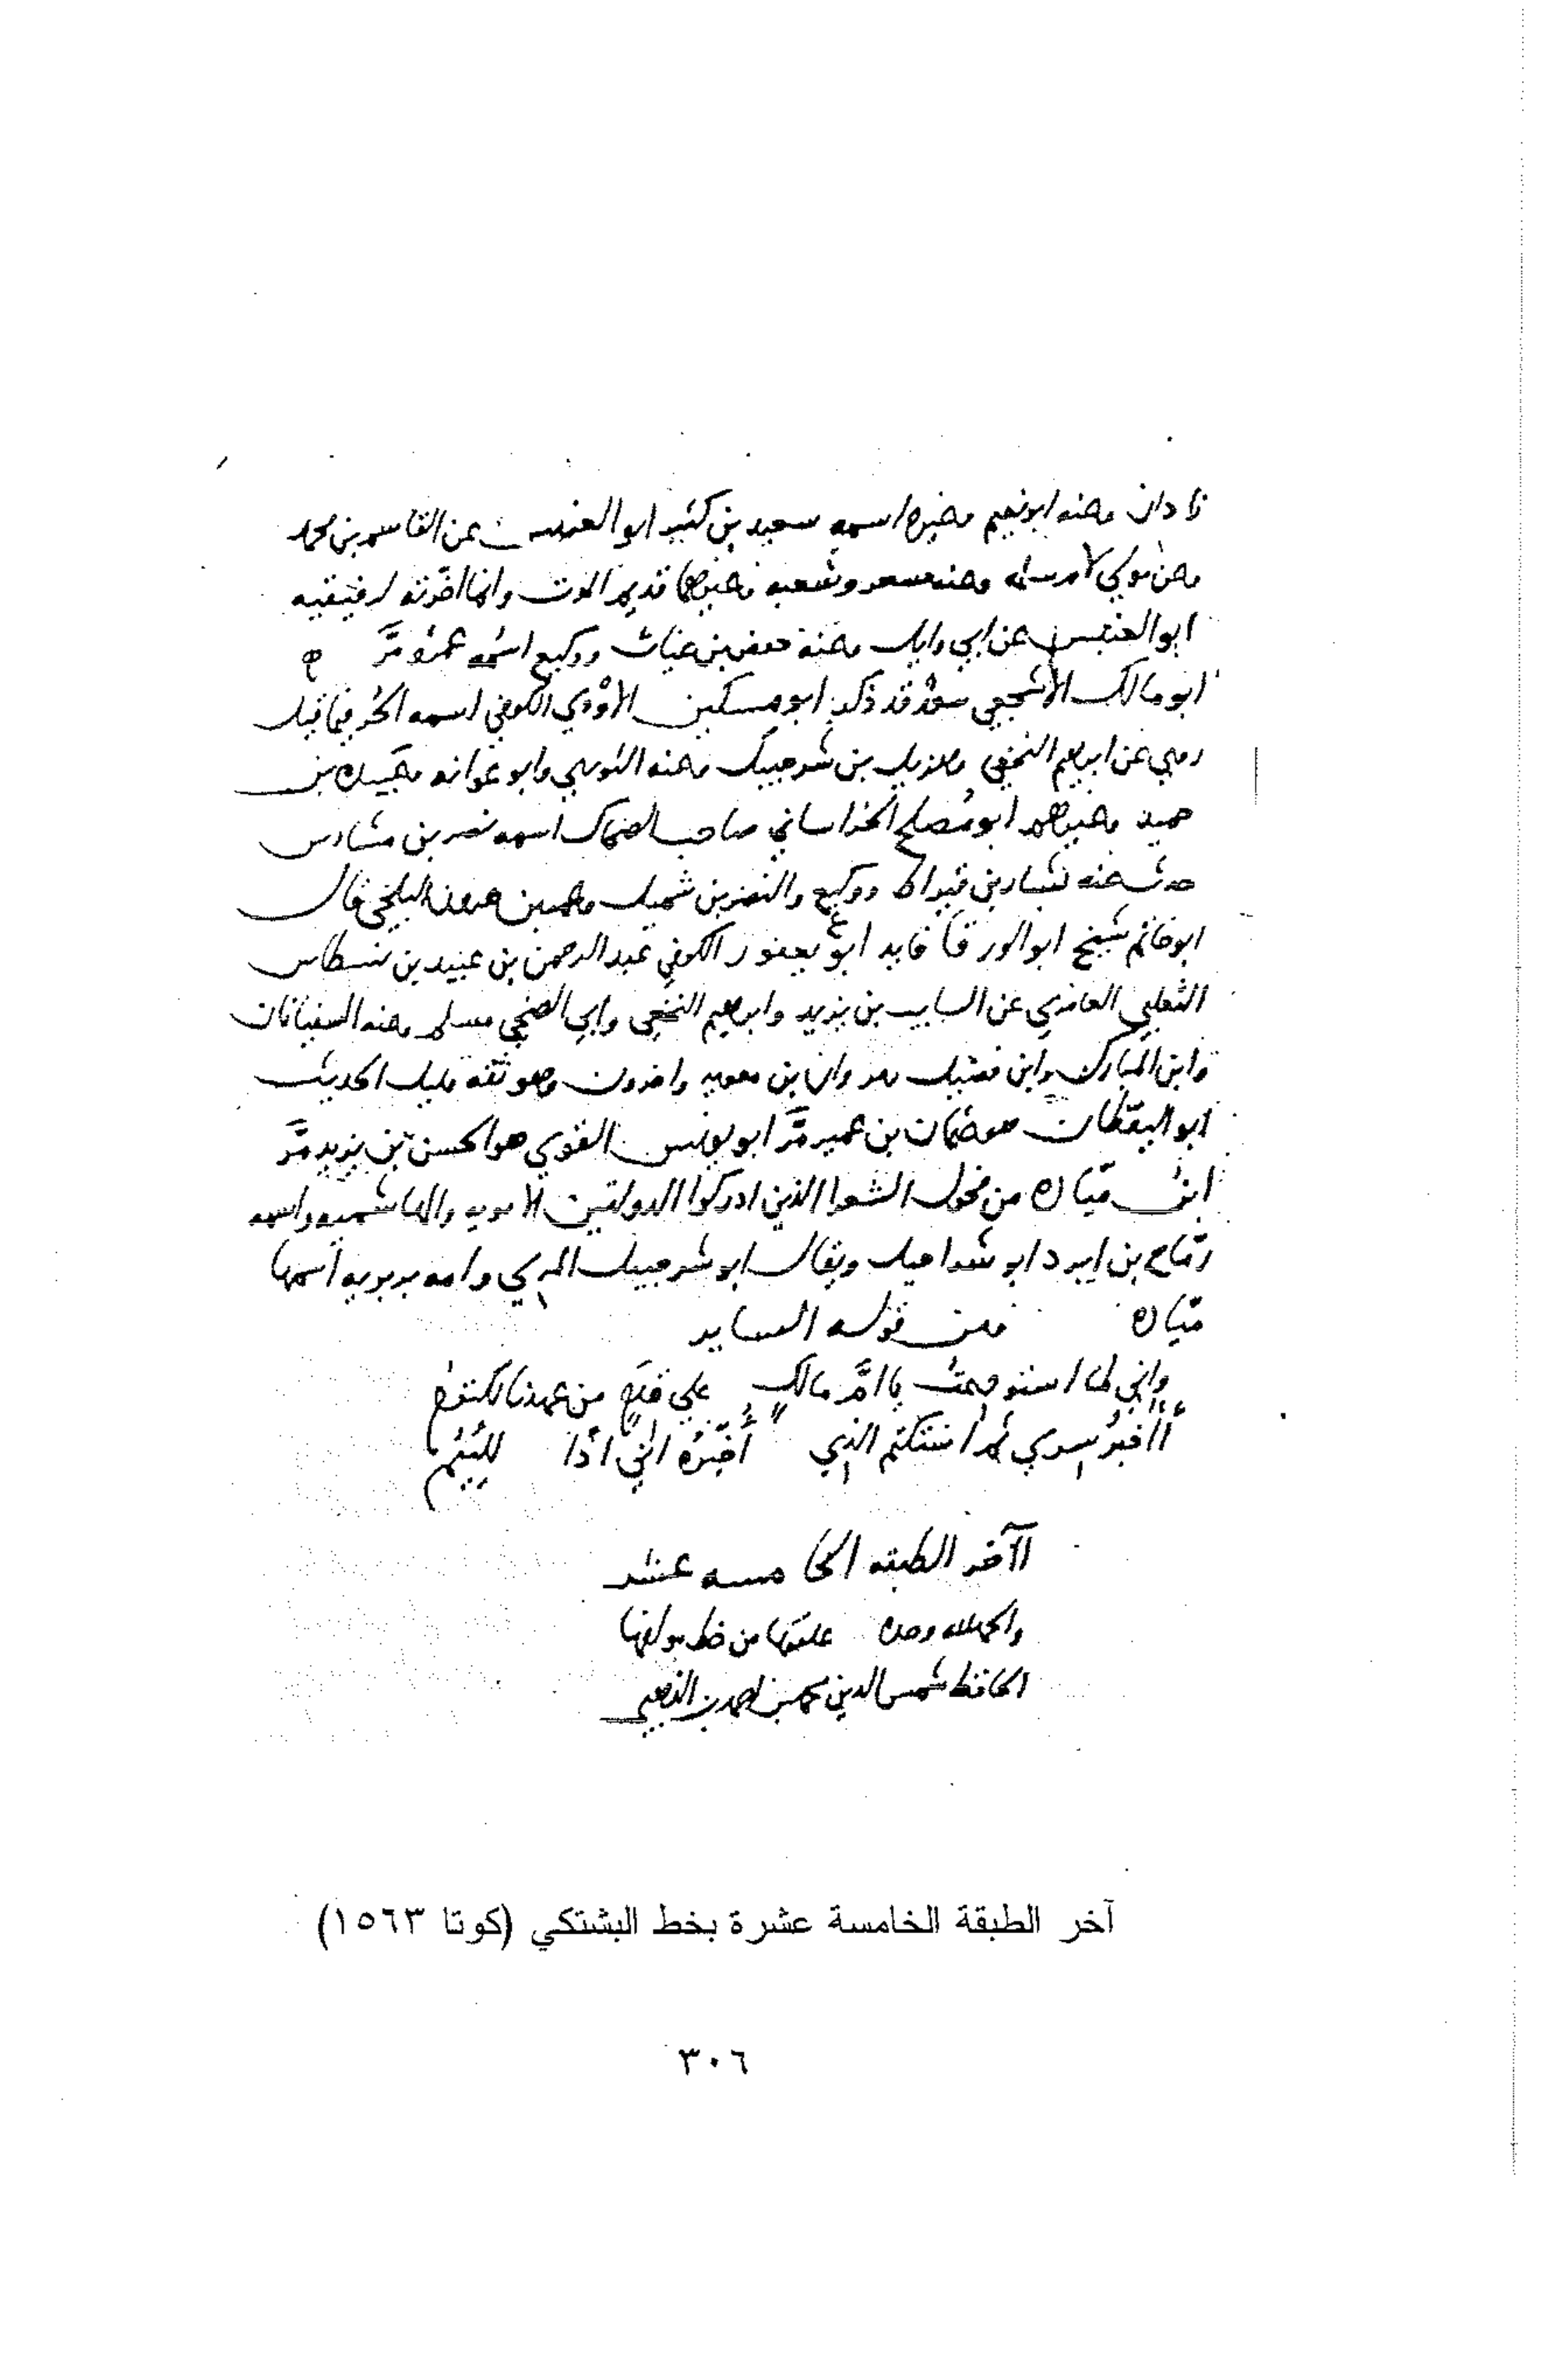 زادان وعنه ابو نعيم وغيره اسمه سعيد بن كثير ابو العنبس عن القاسم بن محمد
وعن مولى لام سلمه وعنه مسعر وشعبه وغيرهما قديم الموت وانما اخرته لرفيقيه
ابو العنبس عن ابي وايل وعنه حفص بن غياث ووكيع اسمه عمرو مرَّ
ابو مالك الاشجعي سعد قد ذكر ابو مسكين الاودي الكوفي اسمه الحر فيما قيل
روى عن ابرهيم النخعي وهزيل بن شرحبيل وعنه الثوري وابو عوانه وعبيده بن
حميد وغيرهم ابو مُصلح الخراساني صاحب الضحاك اسمه نصر بن مشارس
حدث عنه بشار بن قيراط ووكيع والنضر بن شميل البلخي قال
ابو حاتم شيخ ابو الورقا فايد ابو يعفور الكوفي عبد الرحمن بن عبيد بن نسطاس
الثعلبي العامري عن السايب بن يزيد وابرهيم النخعي وابي الضحى مسلم وعنه السفيانان
وابن المبارك وابن فضيل ومروان بن معويه واخرون وهو ثقه قليل الحديث
ابو اليقظان هو عثمان بن عمير مرَّ ابو يونس القوي هو الحسن بن يزيد مرَّ
ابن ميّاده من فحول الشعرا الذين ادركوا الدولتين الامويه والهاشميه واسمه
رمّاح بن ابرد ابو شراحيل ويقال ابو شرحبيل المري وامه بربريه اسمها
ميّاده فمن قوله الساير
واني لما استودعت يا امَّ مالكٍ على قدمٍ من عهدنا لكتوم
أأخبرُ سري ثم استكتم الذي أُخبّرُه اني اذًا للئيم
اآخر الطبقه الخامسه عشر
والحمد لله وحده علقتها من خط مولفها
الحافظ شمس الدين محمد بن احمد بن الذهبي
آخر الطبقة الخامسة عشرة بخط البشتكي (كوتا ١٥٦٣)
٣٠٦